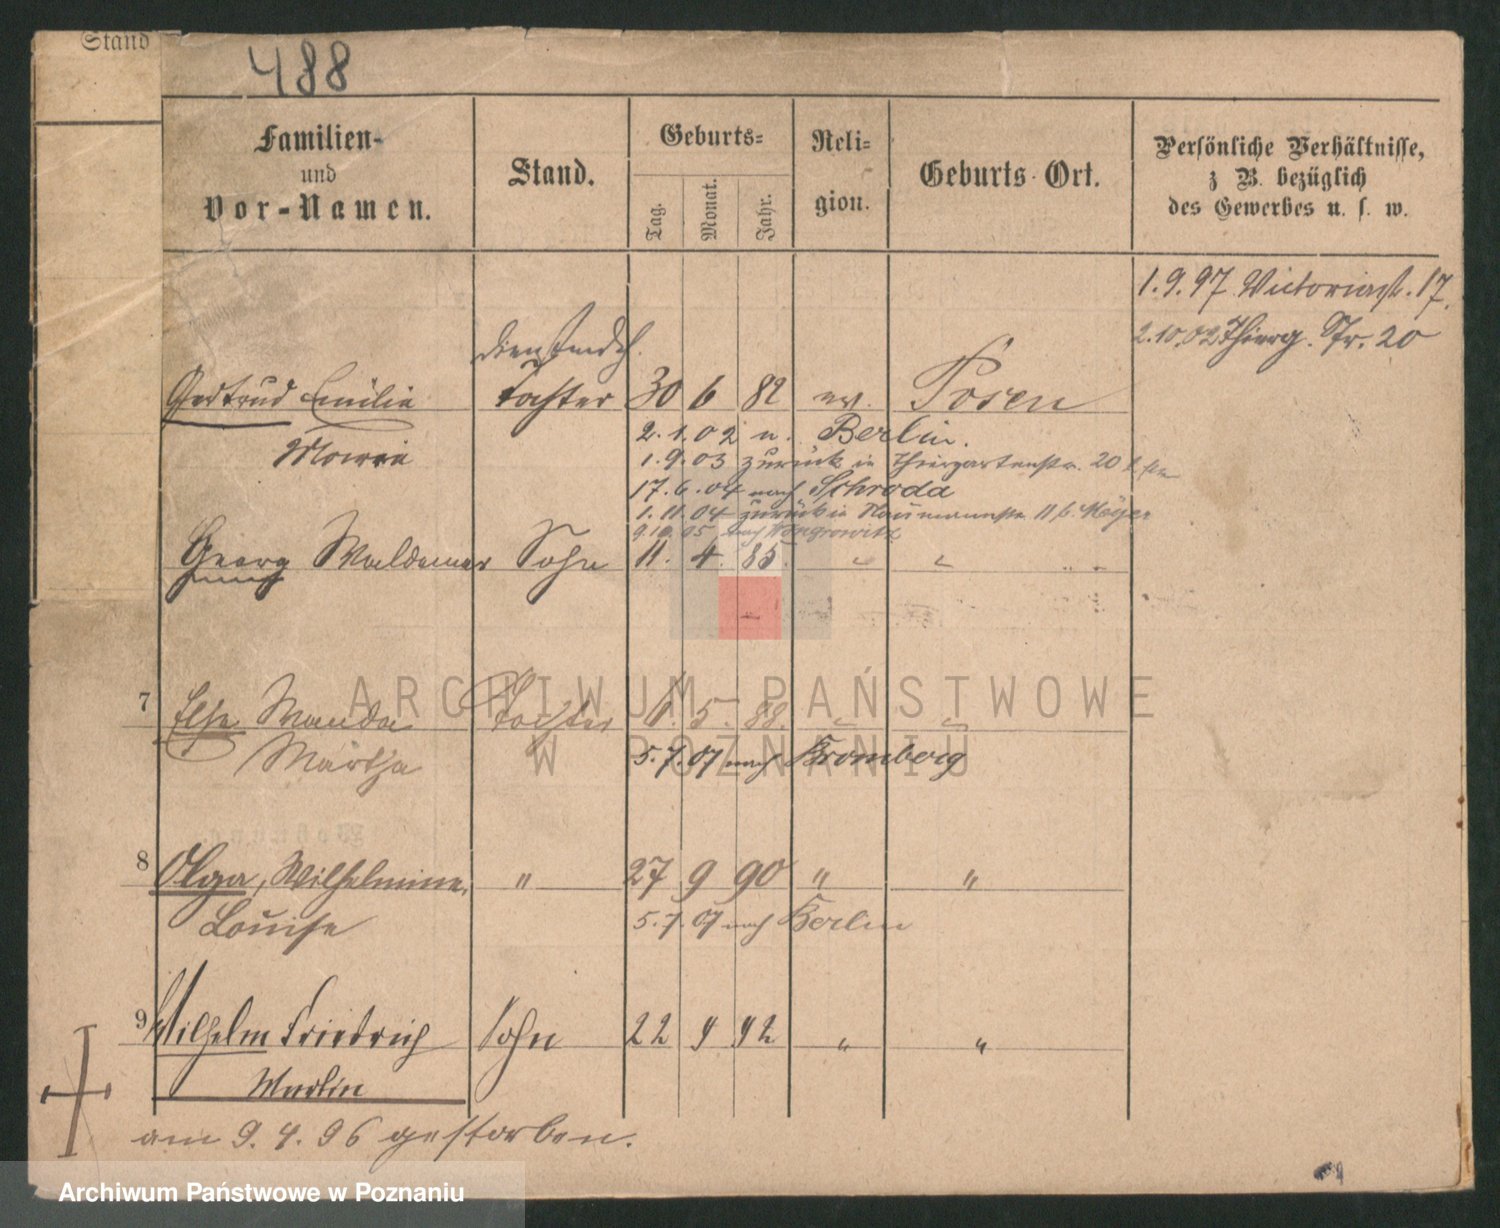 Stand
488
Familien- und Vor-Namen.
Stand.
Geburts-
Tag.
Monat.
Jahr.
Reli-
gion.
Geburts-Ort.
Persönliche Verhältnisse,
z B. bezüglich
des Gewerbes u. s. w.
1. 9. 97 Victoriastr. 17.
2. 10. 02 Thierg. Str. 20
Gertrud Emilie Tochter 30 6 82 ev. Posen
2. 1. 02 n. Berlin.
Maria
1. 9. 03 zurück in Thiergartenstr. 20
17. 6. 04 nach Schroda
1. 11. 04 zurück in Naumannstr. 11 b. Meyer
9. 10. 05 nach Wongrowitz
Georg Waldemar Sohn 11. 4. 85. " " "
7 Else Wanda Tochter 6. 5. 88. " "
Martha
5. 7. 07 nach Bromberg
8 Olga, Wilhelmine, " 27 9 90 " "
Louise
5. 7. 07 nach Berlin
9 Wilhelm Friedrich Sohn 22 9 92 " "
Martin
am 9. 4. 96 gestorben.
ARCHIWUM PAŃSTWOWE
W POZNANIU
Archiwum Państwowe w Poznaniu